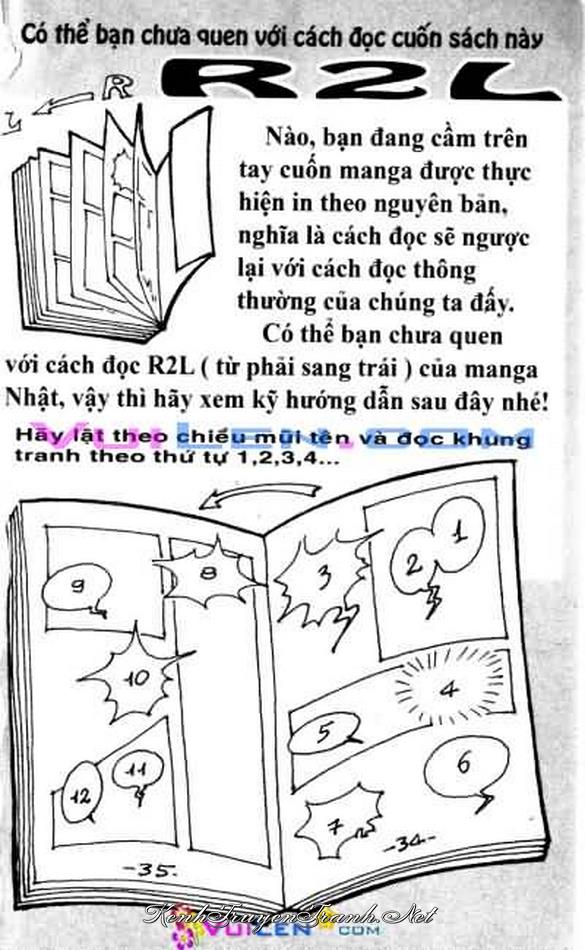 Có thể bạn chưa quen với cách đọc cuốn sách này
R2L
R
Nào, bạn đang cầm trên
tay cuốn manga được thực
hiện in theo nguyên bản,
nghĩa là cách đọc sẽ ngược
lại với cách đọc thông
thường của chúng ta đấy.
Có thể bạn chưa quen
với cách đọc R2L ( từ phải sang trái ) của manga
Nhật, vậy thì hãy xem kỹ hướng dẫn sau đây nhé!
VuiLen.com
Hãy lật theo chiều mũi tên và đọc khung
tranh theo thứ tự 1,2,3,4...
1
2
3
4
5
6
7
-34-
8
9
10
11
12
-35-
KenhTruyenTranh.Net
VUILEN.COM